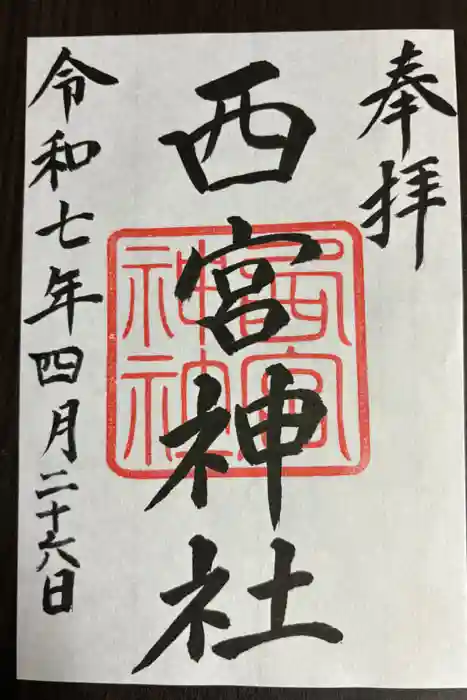 奉拝
西宮神社
令和七年四月二十六日